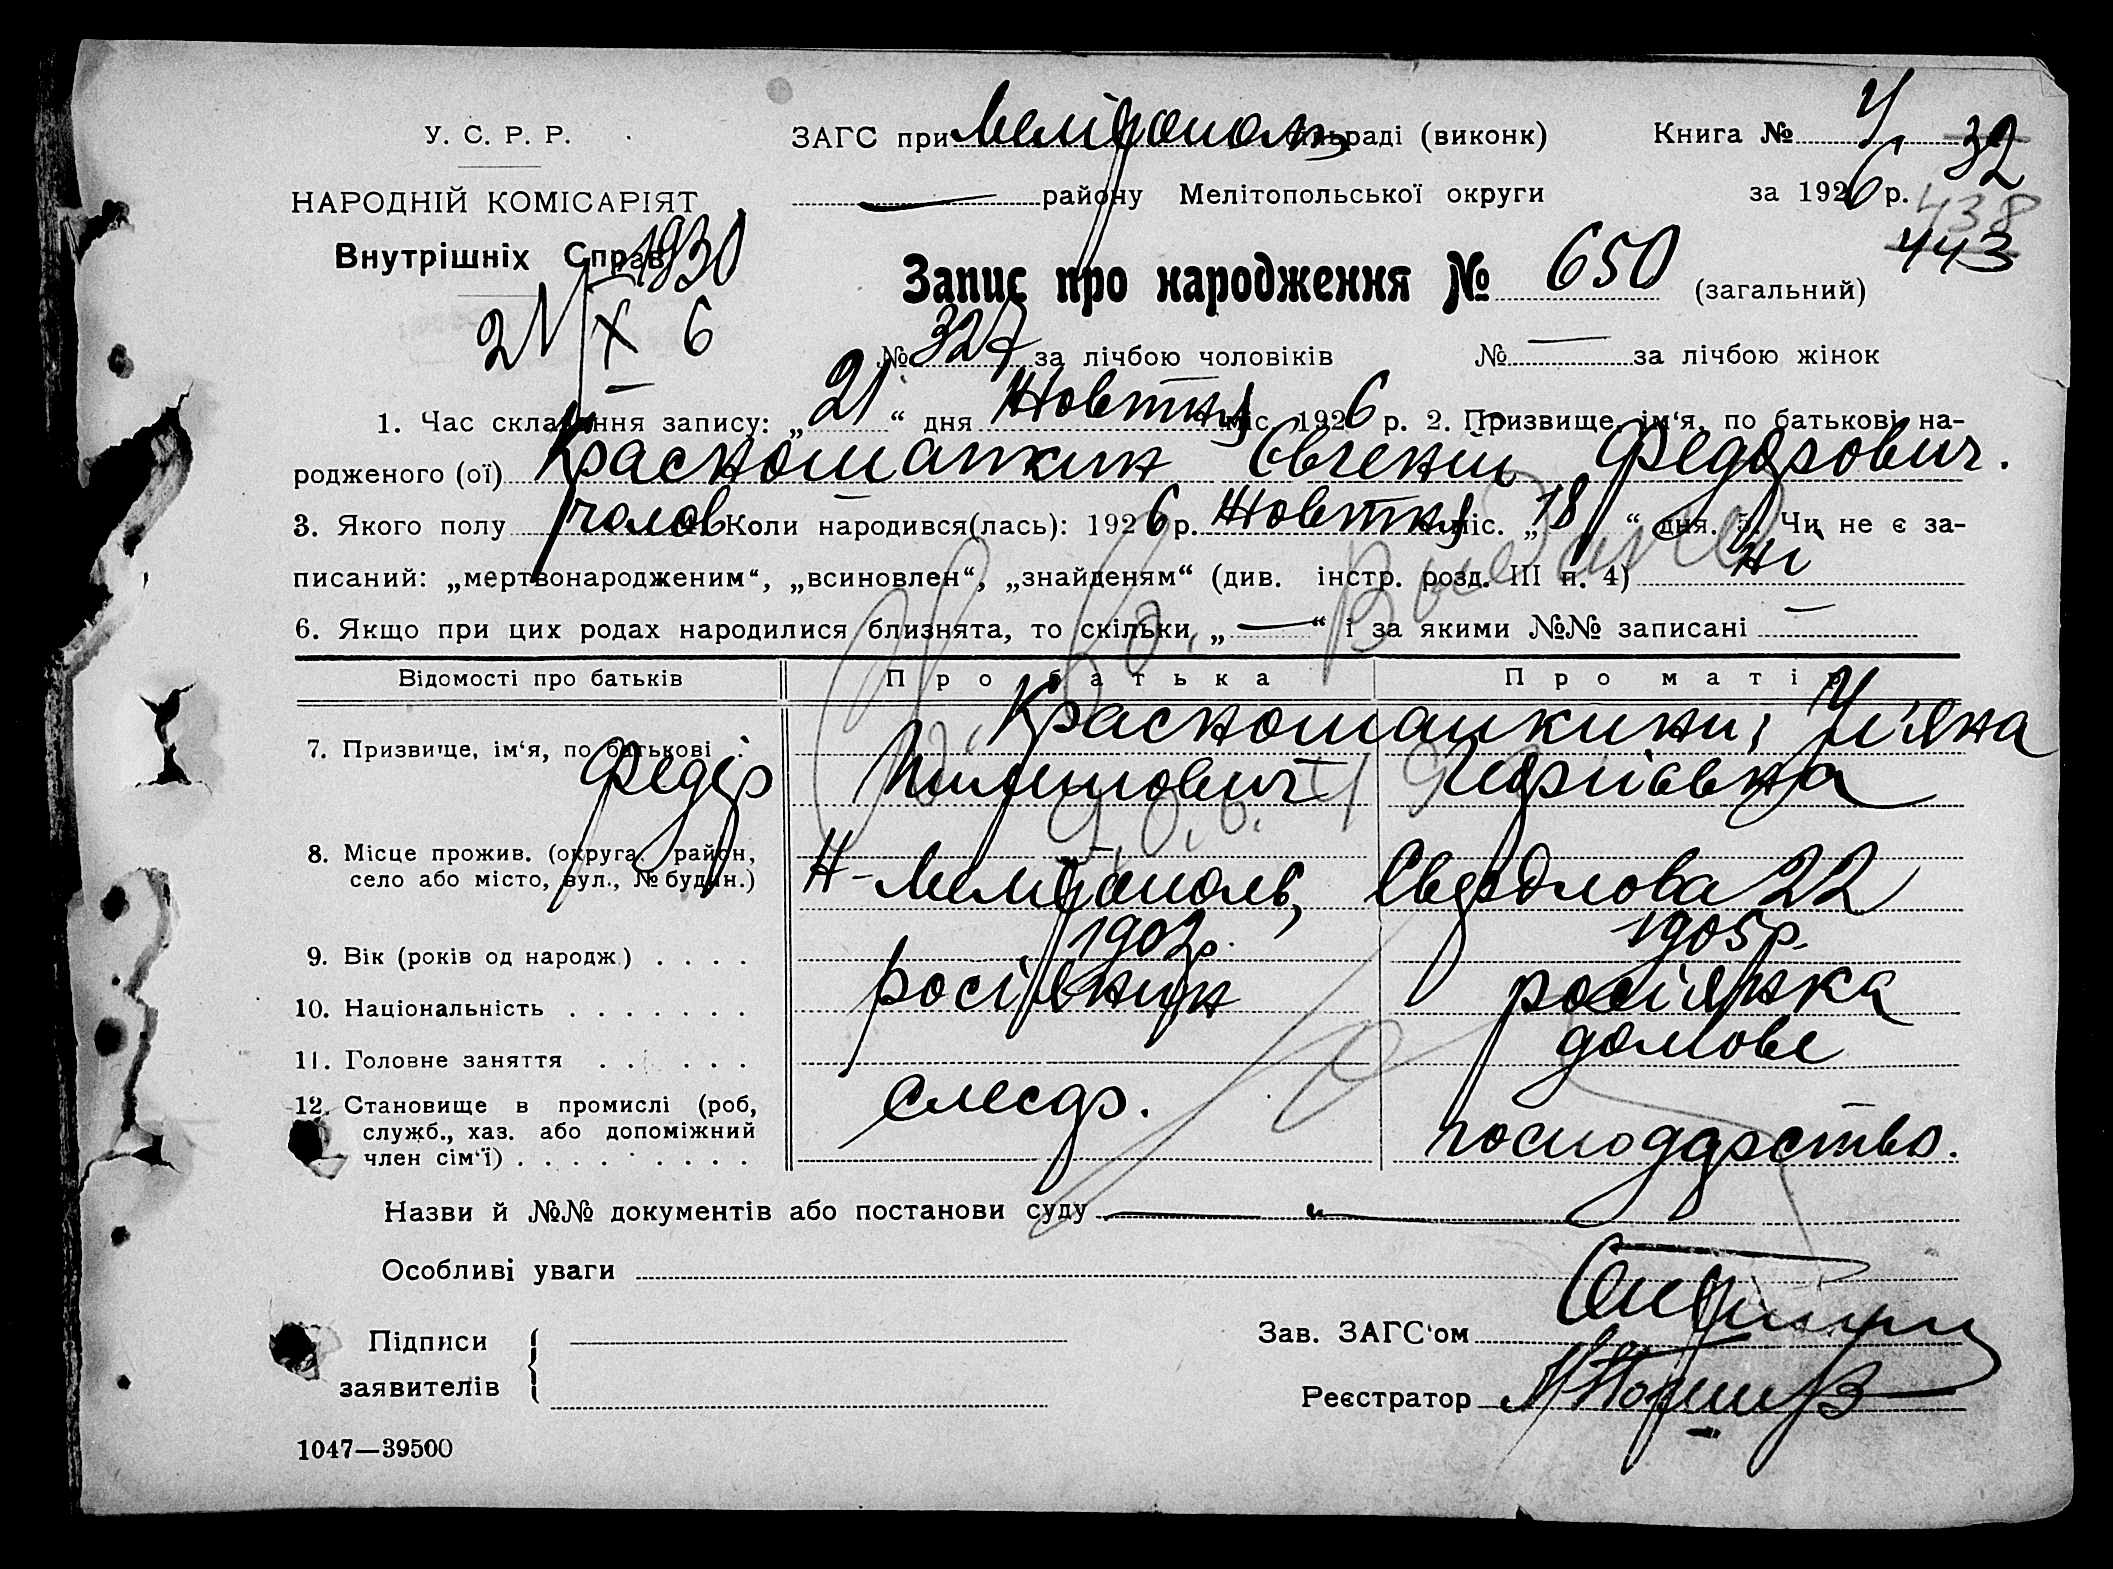 У. С. Р. Р.
НАРОДНІЙ КОМІСАРІЯТ
Внутрішніх Справ
1930
21 X 6
ЗАГС при Мелітополь сільраді (виконк)
Книга № 4/
32
— району Мелітопольської округи
за 1926 р.
438
443
Запис про народження № 650 (загальний)
№ 327 за лічбою чоловіків № — за лічбою жінок
1. Час складання запису: „21“ дня Жовтня міс. 1926 р. 2. Призвище, ім‘я, по батькові на-
родженого (ої) Красношапкин Євгений Федорович.
3. Якого полу чолов 4. Коли народився(лась): 1926 р. Жовтня міс. „18“ дня. 5. Чи не є за-
писаний: „мертвонародженим“, „всиновлен“, „знайденям“ (див. інстр. розд. III п. 4) ні
6. Якщо при цих родах народилися близнята, то скільки „—“ і за якими №№ записані —
Відомості про батьків Про батька Про матір
7. Призвище, ім‘я, по батькові : Красношапкини, Ул'яна
Федір Пилипович
8. Місце прожив. (округа, район,
село або місто, вул., № будин.) Н-Мелітополь, Свердлова 22
9. Вік (років од народж.) . . . . 1902р. 1905р.
10. Національність . . . . . . . росіянин росіянка
11. Головне заняття . . . . . . домове
12. Становище в промислі (роб,
служб., хаз. або допоміжний
член сім‘ї) . . . . . . . . . слесар. господарство.
Назви й №№ документів або постанови суду —
Особливі уваги
Підписи
заявителів
Зав. ЗАГС‘ом
Реєстратор
1047—39500